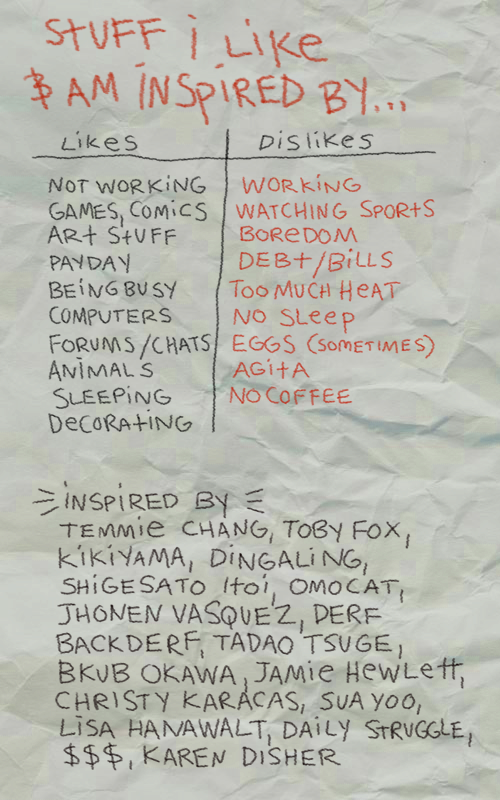 STUFF I LIKE
$ AM INSPIRED BY...
LIKES
DISLIKES
NOT WORKING
GAMES, COMICS
ART STUFF
PAYDAY
BEING BUSY
COMPUTERS
FORUMS/CHATS
ANIMALS
SLEEPING
DECORATING
WORKING
WATCHING SPORTS
BOREDOM
DEBT/BILLS
TOO MUCH HEAT
NO SLEEP
EGGS (SOMETIMES)
AGITA
NO COFFEE
INSPIRED BY
TEMMIE CHANG, TOBY FOX,
KIKIYAMA, DINGALING,
SHIGESATO ITOI, OMOCAT,
JHONEN VASQUEZ, DERF
BACKDERF, TADAO TSUGE,
BKUB OKAWA, JAMIE HEWLETT,
CHRISTY KARACAS, SUA YOO,
LISA HANAWALT, DAILY STRUGGLE,
$$$, KAREN DISHER